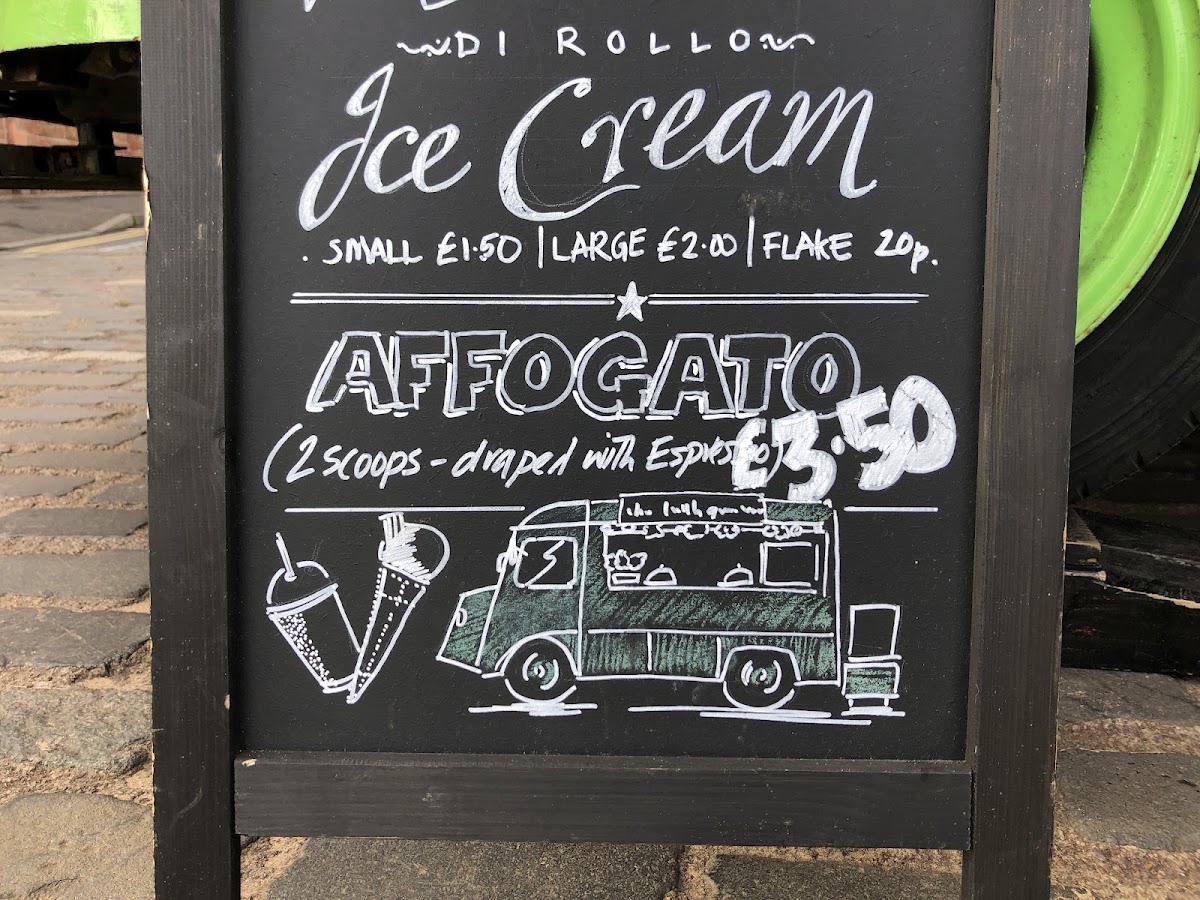 DI ROLLO
Ice Cream
. SMALL £1.50 | LARGE £2.00 | FLAKE 20p.
AFFOGATO
£3.50
(2 scoops - draped with Espresso)